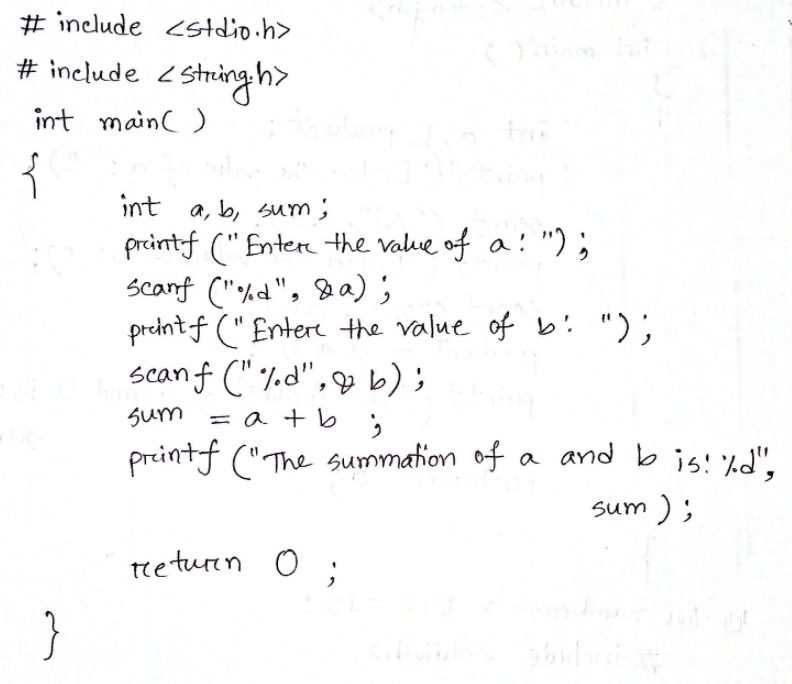 # include <stdio.h>
# include <string.h>
int main( )
{
int a, b, sum ;
printf ("Enter the value of a: ") ;
scanf ("%d", &a) ;
printf ("Enter the value of b: ") ;
scanf ("%d", & b) ;
sum = a + b ;
printf ("The summation of a and b is: %d",
sum ) ;
return 0 ;
}